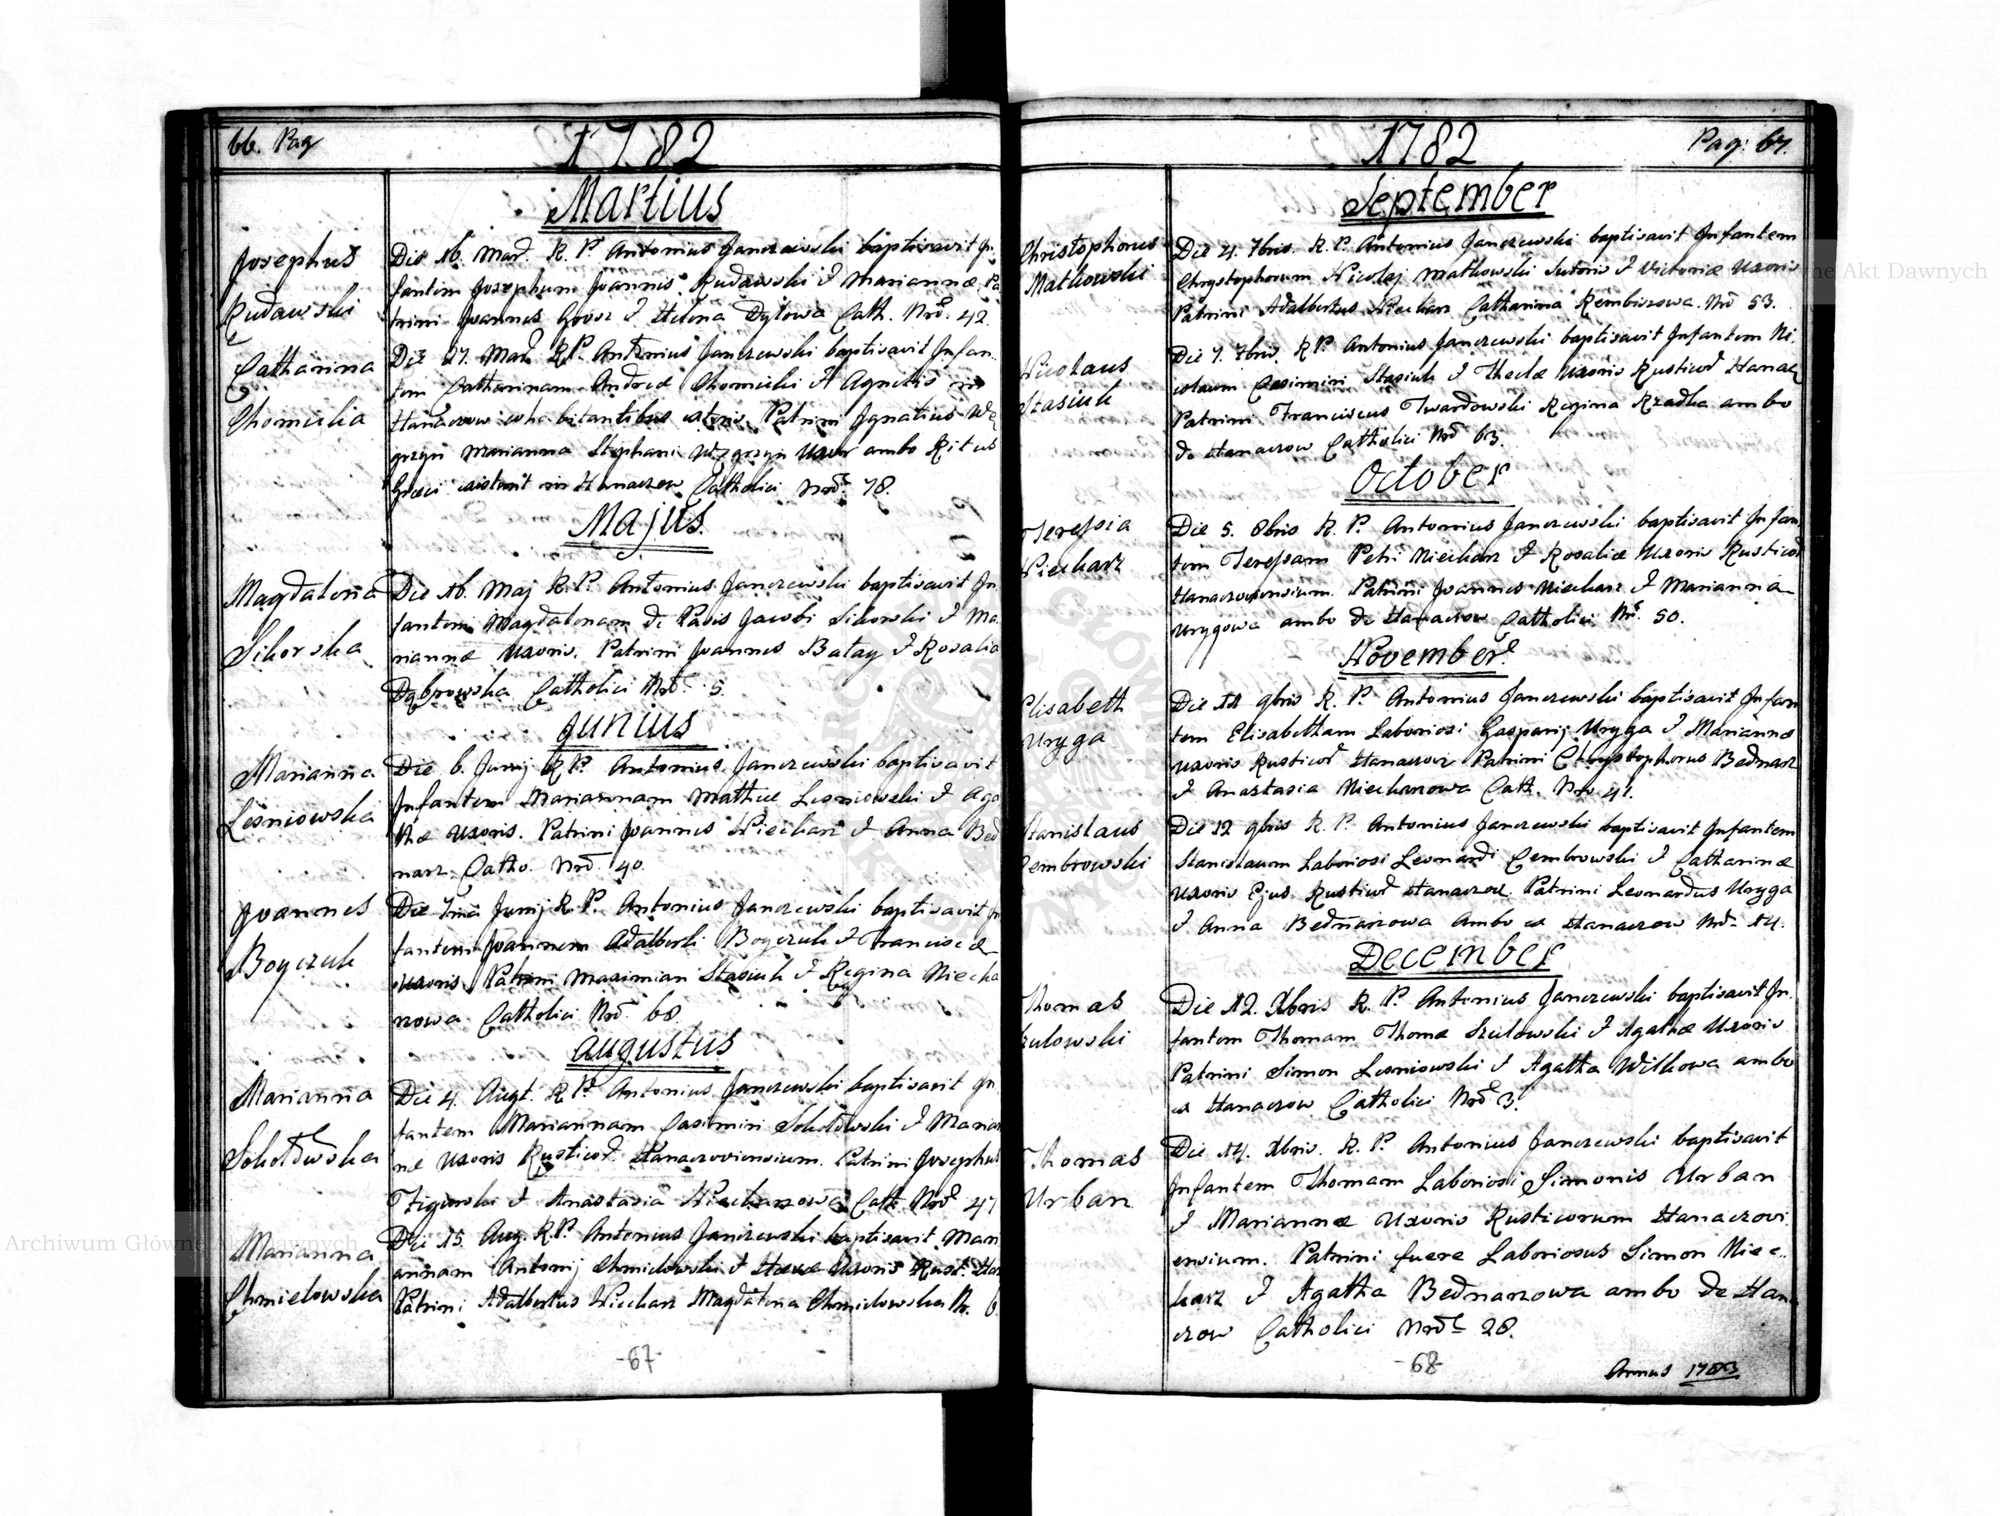 66. Pag
1782
Martius
Josephus
Rudawski
Die 16. Mar. R. P. Antonius Janczewski baptisavit In
fantem Josephum Joannis Rudawski & Mariannæ Pa
trini Joannes & Helena Dylowa Cath. Nrō. 42.
Catharina
Chomicka
Die 17. Mar. R. P. Antonius Janczewski baptisavit Infan
tem Catharinam Andreæ Chomicki & Agnetis in
Patrini Ignatius We
grzyn Marianna Stephani Węgrzyn Uxor ambo Ritus
Græci existunt in Hanaczow Catholici Nrō. 78.
Majus.
Magdalena
Sikorska
Die 16. Maj R. P. Antonius Janczewski baptisavit In
fantem Magdalenam de Pavis Jacobi Sikorski & Ma
riannæ Uxoris. Patrini Joannes Batay & Rosalia
Dąbrowska Catholici Nrō. 5.
Junius
Marianna
Lesniowska
Die 6. Junij R. P. Antonius Janczewski baptisavit
Infantem Mariannam Mathiæ Lesniowski & Aga
thæ Uxoris. Patrini Joannes Niecharz & Anna Bed
narz. Catho. Nrō. 40.
Joannes
Boyczuk
Die 7ma Junij R. P. Antonius Janczewski baptisavit In
fantem Joannem Adalberti Boyczuk & Franciscæ
Uxoris Patrini Maximian Stasiuk & Regina Niecha
rzowa Catholici Nrō. 68.
Augustus
Marianna
Sokołowska
Die 4. Augt. R. P. Antonius Janczewski baptisavit In
fantem Mariannam Casimiri Sokołowski & Marian
næ Uxoris Rusticor. Hanaczoviensium. Patrini Josephus
Figurski & Anastasia Niecharzowa Cath. Nrō 47
Marianna
Chmielowska
Die 15. Aug. R. P. Antonius Janczewski baptisavit Mari
annam Antonij Chmielowski & Uxoris Rust. Han
Patrini Adalbertus Niecharz Magdalena Chmielowska Nr. 6
-67-
1782
Pag: 67.
September
Christophorus
Matkowski
Die 4. 7bris. R. P. Antonius Janczewski baptisavit Infantem
Chrystophorum Nicolaj Matkowski Sutoris & Victoriæ Uxoris
Patrini Adalbertus Niecharz Catharina Rembiszowa. Nrō 53.
Nicolaus
Stasiuk
Die 7. 7bris. R. P. Antonius Janczewski baptisavit Infantem Ni
colaum Casimiri Stasiuk & Theclæ Uxoris Rusticor Hanacz
Patrini Franciscus Twardowski Regina Rzadka ambo
de Hanaczow Catholici Nrō 63.
October
Teressia
Niecharz
Die 5. 8bris R. P. Antonius Janczewski baptisavit Infan
tem Teressam Petri Niecharz & Rosaliæ Uxoris Rusticor
Hanaczoviensium. Patrini Joannes Niecharz & Marianna
Urygowa ambo de Hanaczow Catholici Nrō. 50.
November.
Elisabeth
Uryga
Die 11 9bris R. P. Antonius Janczewski baptisavit Infan
tem Elisabetham Laboriosi Gasparij Uryga & Mariannæ
Uxoris Rusticor Hanaczow Patrini Chrystophorus Bednarz
& Anastasia Niecharzowa Cath. Nrō 47.
Stanislaus
Cembrowski
Die 12 9bris R. P. Antonius Janczewski baptisavit Infantem
Stanislaum Laboriosi Leonardi Cembrowski & Catharinæ
Uxoris Ejus Rusticor Hanaczow. Patrini Leonardus Uryga
& Anna Bednarzowa ambo ex Hanaczow Nrō. 14.
December
Thomas
Szulowski
Die 12. Xbris R. P. Antonius Janczewski baptisavit In
fantem Thomam Thomæ Szulowski & Agathæ Uxoris
Patrini Simon Lesniowski & Agatha Wilkowa ambo
ex Hanaczow Catholici Nrō 3.
Thomas
Urban
Die 14. Xbris. R. P. Antonius Janczewski baptisavit
Infantem Thomam Laboriosi Simonis Urban
& Mariannæ Uxoris Rusticorum Hanaczovi
ensium. Patrini fuere Laboriosus Simon Niec
harz & Agatha Bednarzowa ambo de Hana
czow Catholici Nrō 28.
-68-
Annus 1783
Archiwum Główne Akt Dawnych